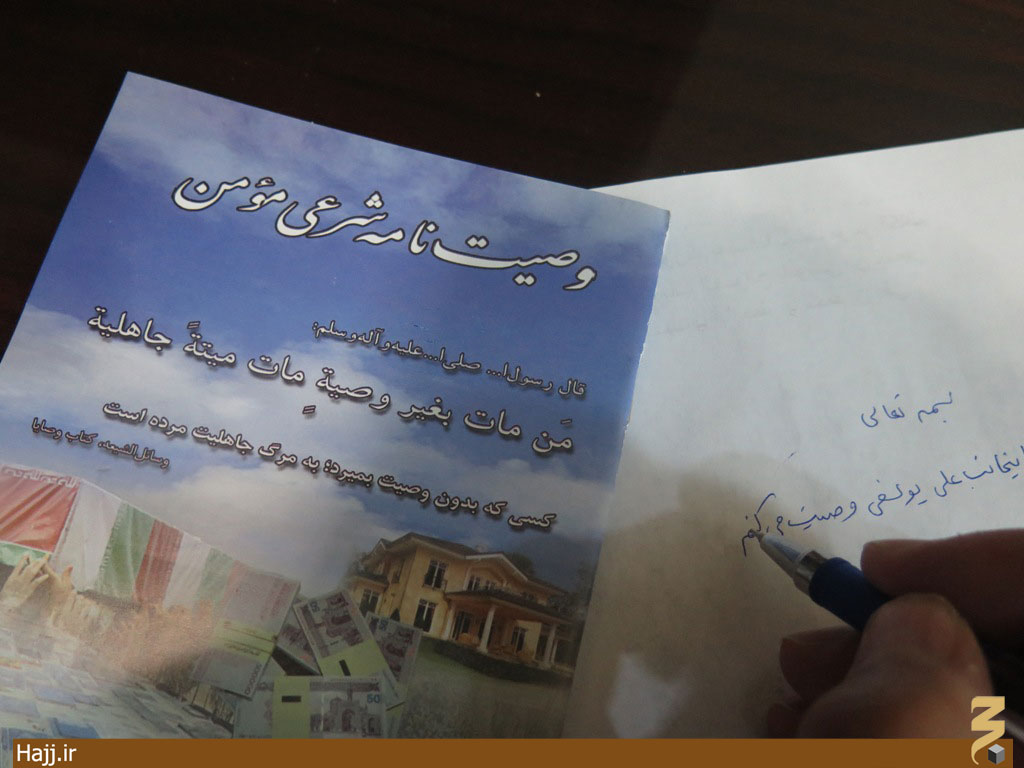 وصیت نامه شرعی مؤمن
قال رسول‌ا... صلی‌ا... علیه‌وآله‌وسلم:
مَن مات بغیر وصیةٍ مات میتةً جاهلیة
کسی که بدون وصیت بمیرد؛ به مرگ جاهلیت مرده است
وسائل‌الشیعه، کتاب وصایا
بسمه تعالی
اینجانب علی یوسفی وصیت می کنم
50
Hajj.ir